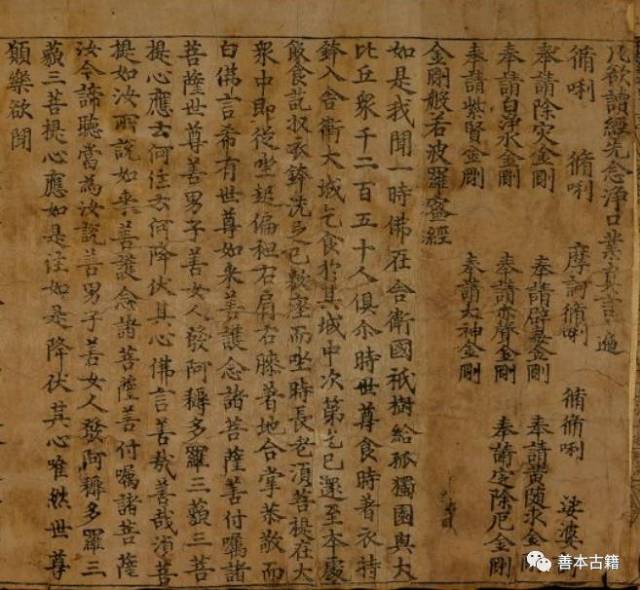 凡欲讀經先念淨口業真言一遍
脩唎 脩唎 摩訶脩唎 脩脩唎 娑婆
奉請除灾金剛 奉請辟毒金剛 奉請黃隨求金剛
奉請白淨水金剛 奉請赤聲金剛 奉請定除厄金剛
奉請紫賢金剛 奉請大神金剛
金剛般若波羅蜜經
如是我聞一時佛在舍衛國祇樹給孤獨園與大
比丘衆千二百五十人俱尒時世尊食時著衣持
鉢入舍衛大城乞食於其城中次第乞已還至本處
飯食訖収衣鉢洗足已敷座而坐時長老須菩提在大
衆中即從坐起偏袒右肩右膝著地合掌恭敬而
白佛言希有世尊如来善護念諸菩薩善付囑諸
菩薩世尊善男子善女人發阿耨多羅三藐三菩
提心應云何住云何降伏其心佛言善哉善哉須菩
提如汝所說如来善護念諸菩薩善付囑諸菩薩
汝今諦聽當為汝說善男子善女人發阿耨多羅三
藐三菩提心應如是住如是降伏其心唯然世尊
願樂欲聞
善本古籍